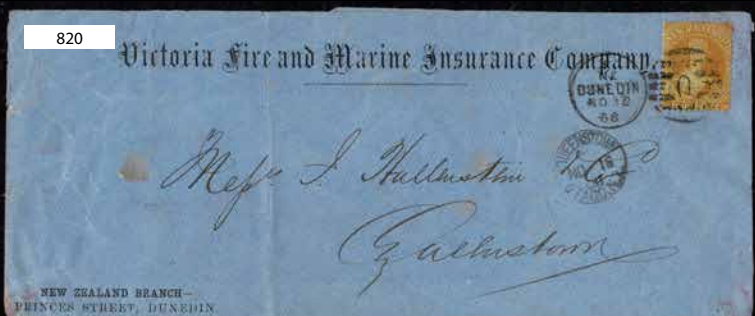 820
Victoria Fire and Marine Insurance Company.
NZ
DUNEDIN
NO 12
68
O
QUEENSTOWN
Messrs I. Hallenstein & Co
Queenstown
NEW ZEALAND BRANCH—
PRINCES STREET, DUNEDIN